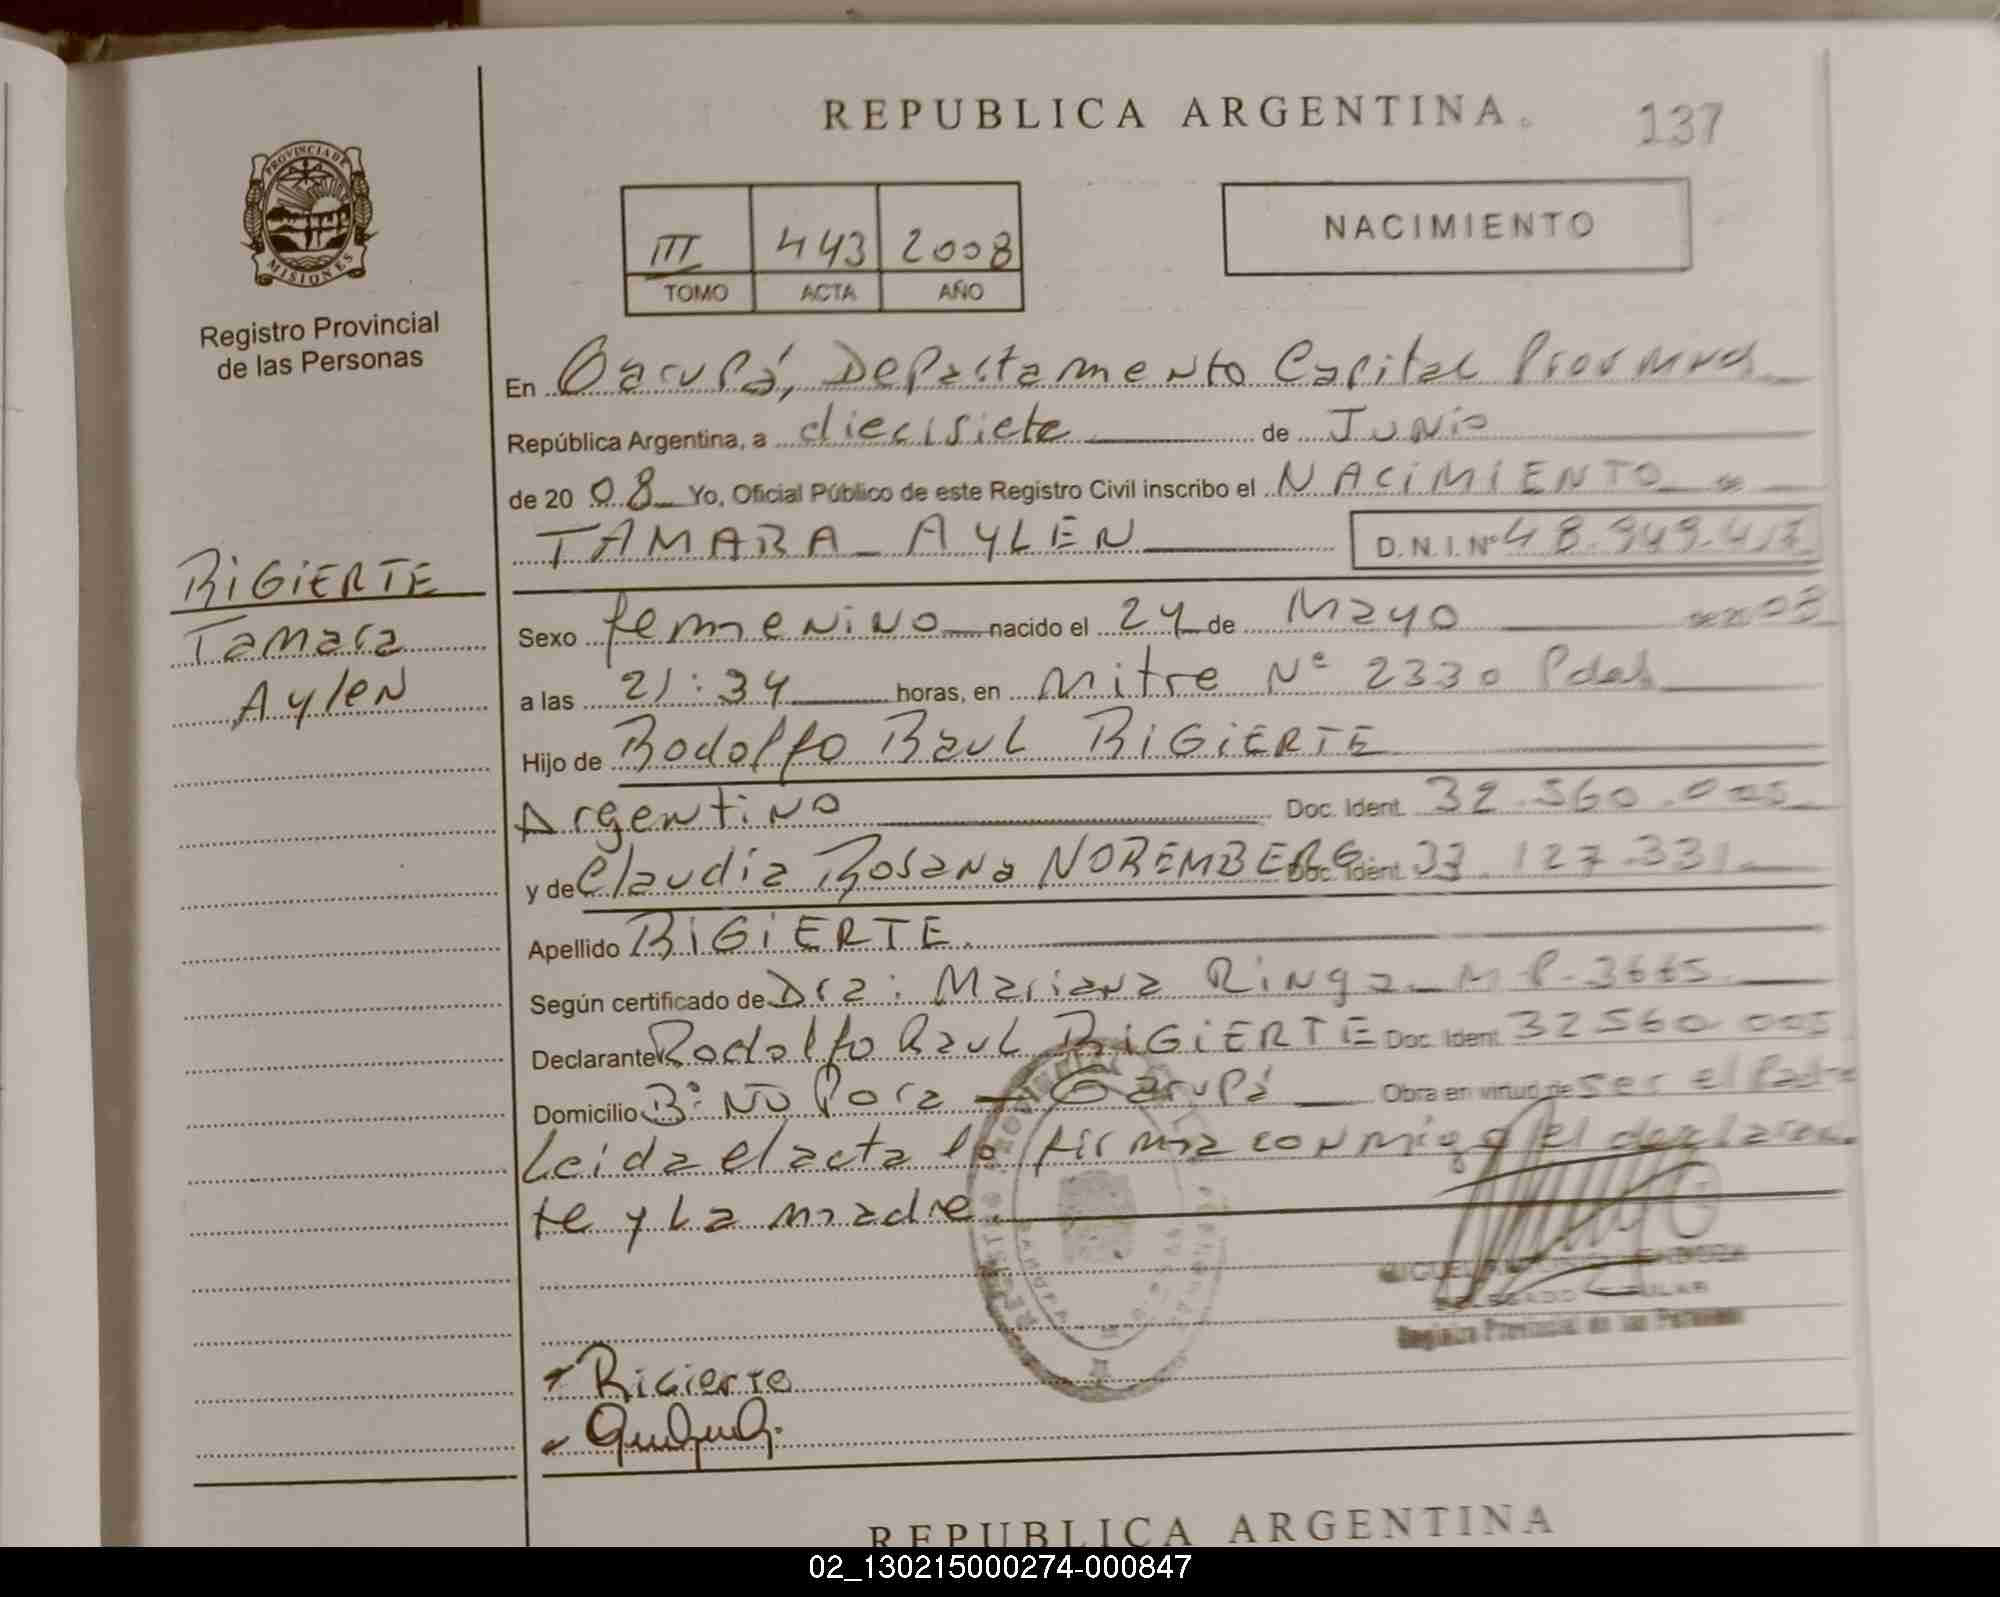 REPUBLICA ARGENTINA
137
PROVINCIA DE
MISIONES
Registro Provincial
de las Personas
III 443 2008
TOMO ACTA AÑO
NACIMIENTO
En Garupá, Departamento Capital
República Argentina, a diecisiete de Junio
de 20 08 Yo, Oficial Público de este Registro Civil inscribo el NACIMIENTO
TAMARA AYLEN D.N.I. Nº 48.949.417
RIGIERTE
Tamara
Aylen
Sexo femenino nacido el 24 de Mayo de 20 08
a las 21:34 horas, en Mitre Nº 2330 Pdas
Hijo de Rodolfo Raul RIGIERTE
Argentino Doc. Ident. 32.560.005
y de Claudia Rosana NOREMBERG Doc. Ident. 33.127.331
Apellido RIGIERTE
Según certificado de Dra: Mariana Ringa M-P-3665
Declarante Rodolfo Raul RIGIERTE Doc. Ident. 32560005
Domicilio Bº: ÑU Pora - Garupá Obra en virtud de ser el Padre
Leida el acta la firma conmigo el declaran
te y La madre.
Registro Provincial de las Personas
Rigierte
REPUBLICA ARGENTINA
02_130215000274-000847